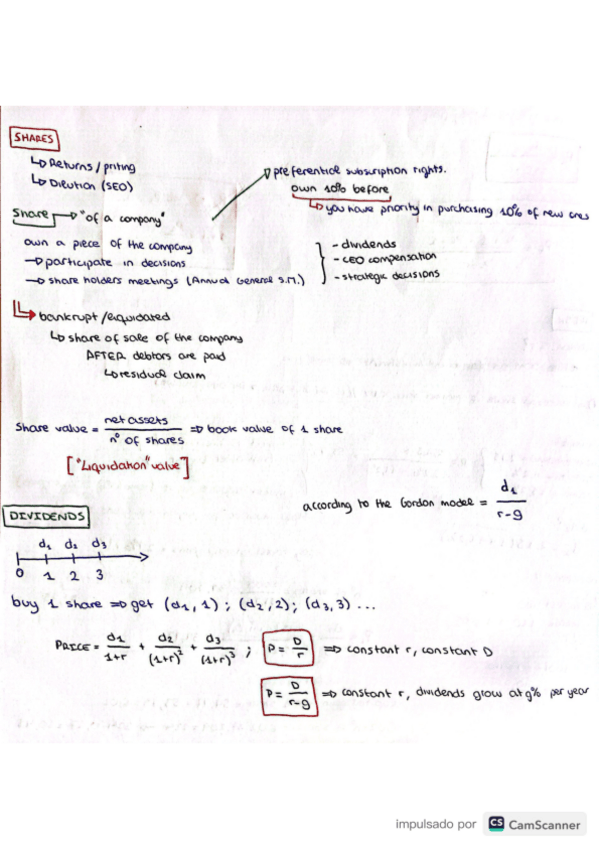 SHARES
↳ Returns / pricing
↳ Dilution (SEO)
preferential subscription rights.
own 10% before
↳ you have priority in purchasing 10% of new ones
Share → "of a company"
own a piece of the company
→ participate in decisions
→ share holders meetings (Annual General S.M.)
- dividends
- CEO compensation
- strategic decisions
↳ bankrupt / liquidated
↳ share of sale of the company
AFTER debtors are paid
↳ residual claim
Share value = net assets / nº of shares ⇒ book value of 1 share
["Liquidation" value]
according to the Gordon model = d₁ / r-g
DIVIDENDS
d₁ d₂ d₃
0 1 2 3
buy 1 share ⇒ get (d₁, 1) ; (d₂, 2) ; (d₃, 3) ...
PRICE = d₁/1+r + d₂/(1+r)² + d₃/(1+r)³ ; P = D/r ⇒ constant r, constant D
P = D/r-g ⇒ constant r, dividends grow at g% per year
impulsado por CS CamScanner